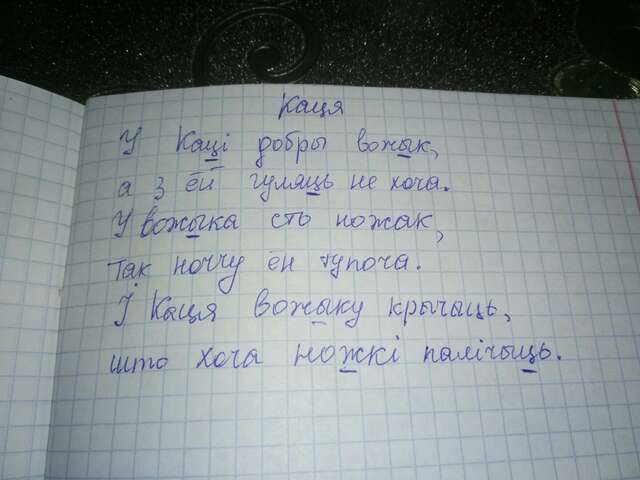 Каця
У Каці добры вожык,
а з ёй гуляць не хоча.
У вожыка сто ножак,
Так ноччу ён тупоча.
І Каця вожыку крычыць,
што хоча ножкі палічыць.